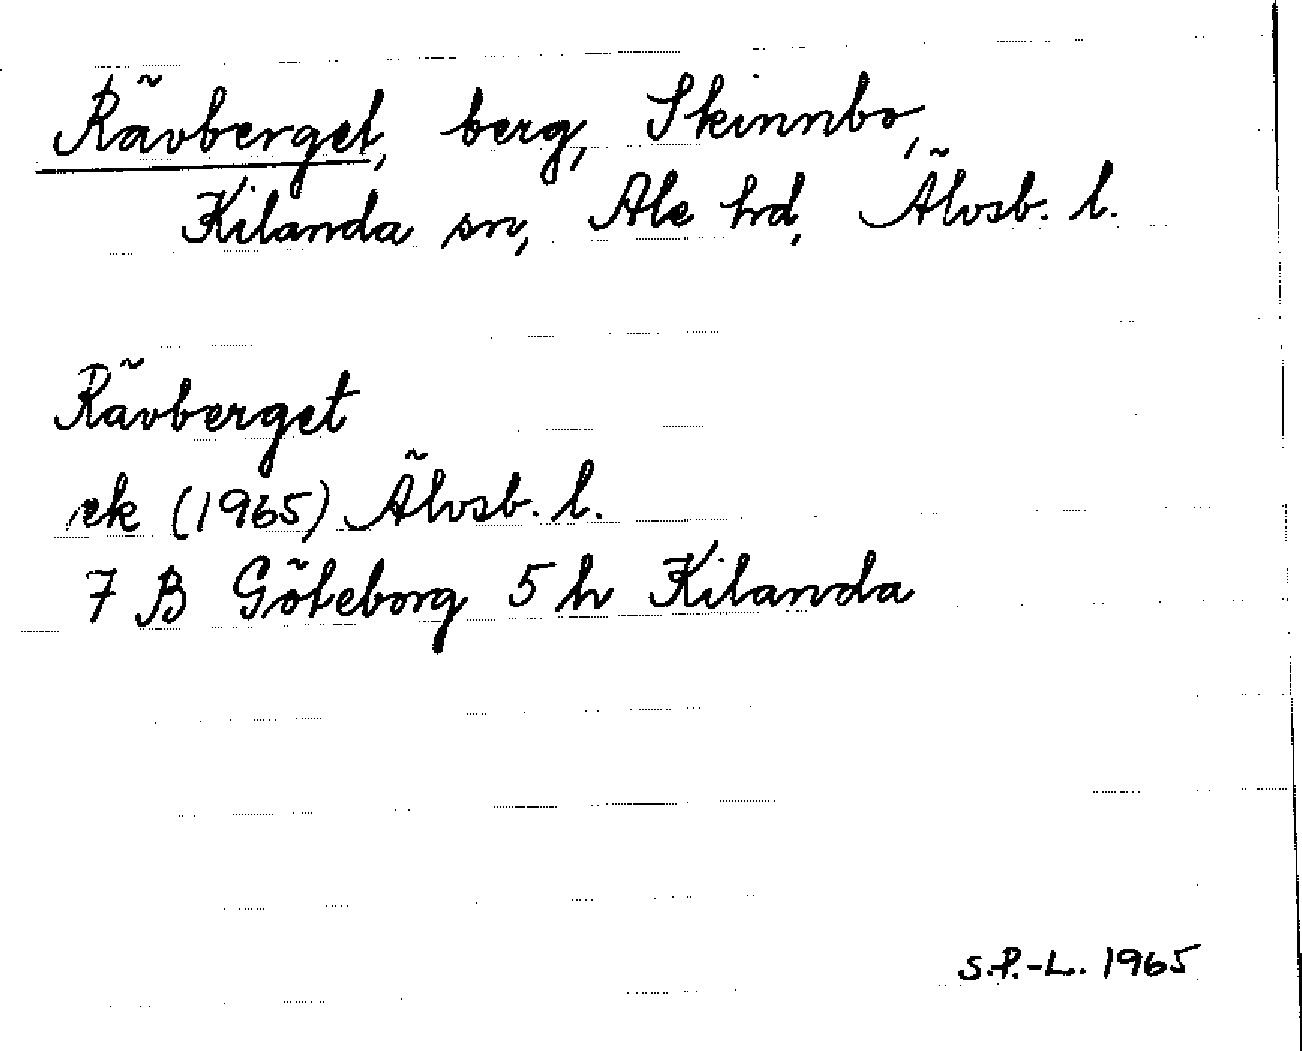 Rävberget, berg, Skinnbo,
Kilanda sn, Ale hd, Älvsb. l.
Rävberget
ek (1965) Älvsb. l.
7 B Göteborg 5 h Kilanda
S.P.-L. 1965